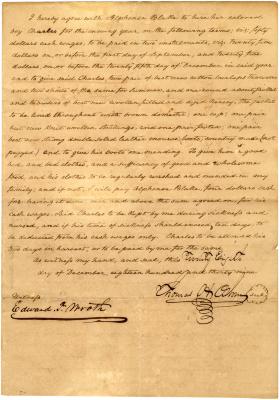 I hereby agree with Alphonso Blake to hire his colored
boy Charles for the ensuing year on the following terms; viz, fifty
dollars cash wages, to be paid in two instalments, viz, twenty five
dollars on, or before the first day of September, and twenty five
dollars on or before the twenty fifth day of December in said year
and to give said Charles two pair of best new cotton trowsers
and two shirts of the same for summer, and one round about jacket
and of best new woollen filled and dyed, the jacket
to be lined throughout with brown domestic; one cap; one pair
best new knit woollen stockings, and one pair footed; one pair
best new strong double soled leather country made
pegged; And to give his boots one mending. To give him a good
bed, and bed clothes, and a sufficiency of good and wholesome
food, and his clothes to be regularly washed and mended in my
family; and if not, I will pay Alphonso Blake four dollars cash
for having it done over and above the sum agreed on, for his
cash wages. Said Charles to be kept by me during sickness and
nursed, and if his time of sickness should exceed ten days, to
be deducted from his cash wages only. Charles to be allowed his
two days in harvest, or to be paid by me for the same
As witness my hand, and seal, this Twenty Eighth
day of December eighteen hundred and thirty nine
Witness
Thomas
Edward Worth